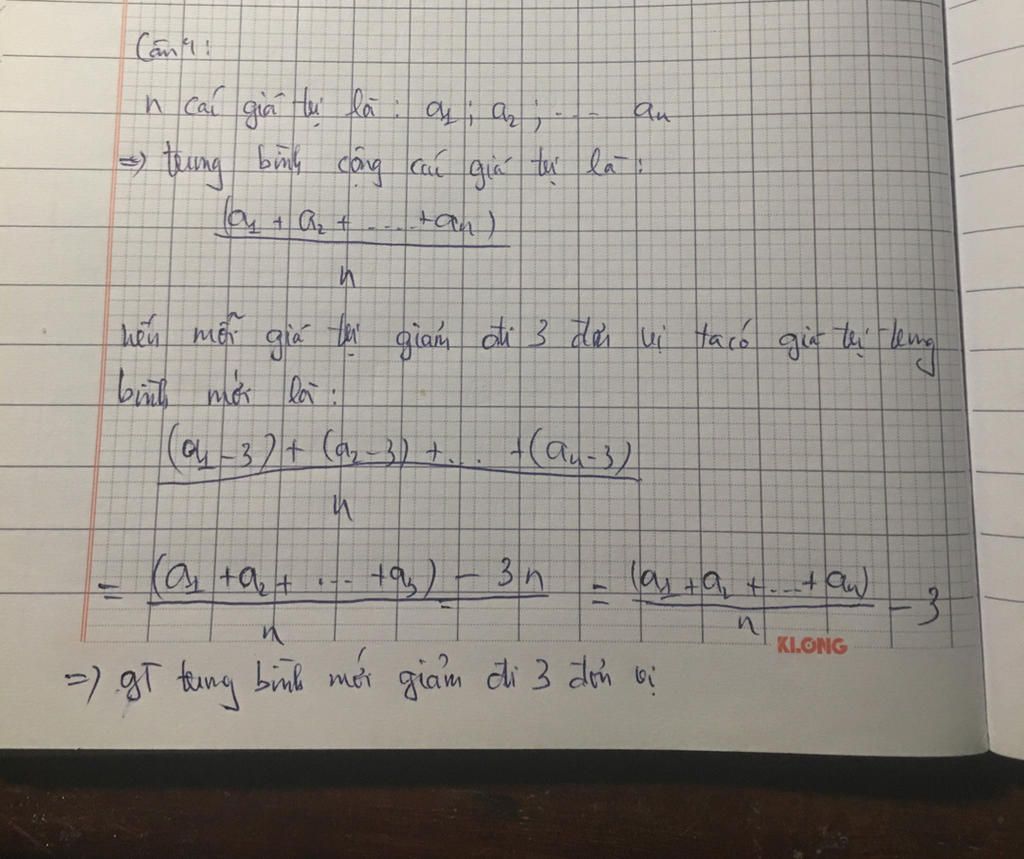 Câu 4:
n các giá trị là: a₁; a₂; .... aₙ
=> trung bình cộng các giá trị là:
(a₁ + a₂ + .... + aₙ)
n
nếu mỗi giá trị giảm đi 3 đơn vị ta có giá trị trung
bình mới là:
(a₁ - 3) + (a₂ - 3) + ... + (aₙ - 3)
n
= (a₁ + a₂ + .... + a₃) - 3n = (a₁ + a₂ + .... + aₙ) - 3
n n
KLONG
=> GT trung bình mới giảm đi 3 đơn vị